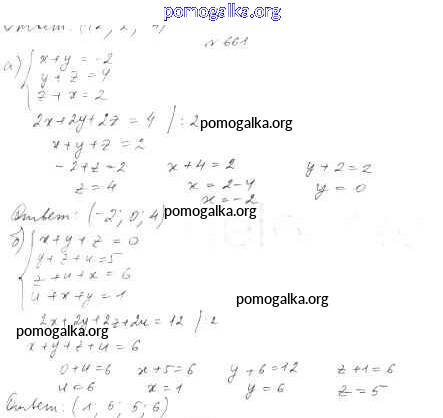 pomogalka.org
№ 661
а) { x+y = -2
y + z = 4
z + x = 2
2x+2y+2z = 4 / : 2
pomogalka.org
x + y + z = 2
-2+z=2 x+4=2 y+2=2
z = 4 x = 2-4 y = 0
x = -2
Ответ: (-2; 0; 4)
pomogalka.org
б) { x+y+z=0
y+z+u=5
z+u+x=6
u+x+y=1
pomogalka.org
2x+2y+2z+2u = 12 / 2
pomogalka.org
x+y+z+u=6
0+u=6 x+5=6 y+6=12 z+1=6
u=6 x=1 y=6 z=5
Ответ: (1; 6; 5; 6)